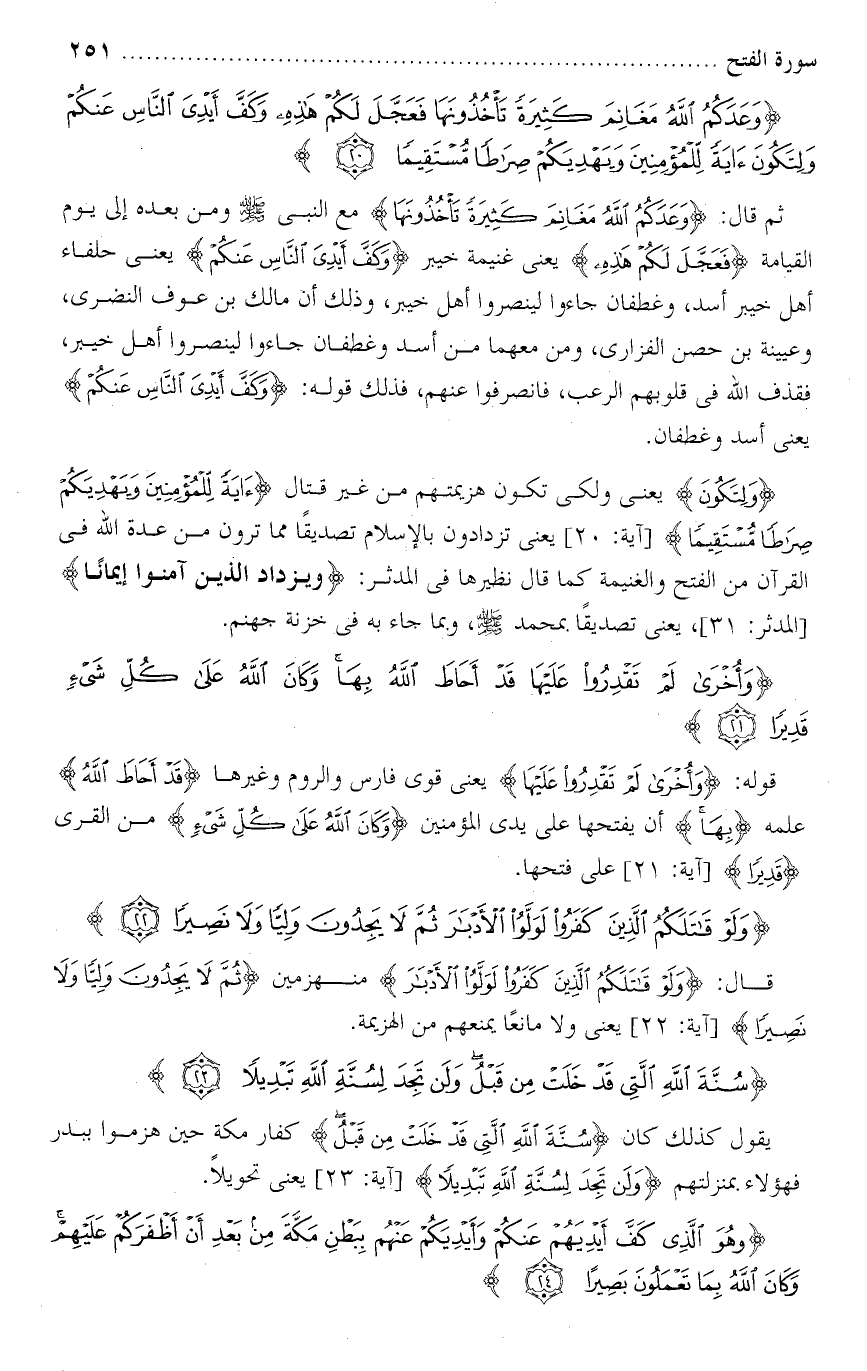 سورة الفتح ........................................................................ ٢٥١
﴿وَعَدَكُمُ اللَّهُ مَغَانِمَ كَثِيرَةً تَأْخُذُونَهَا فَعَجَّلَ لَكُمْ هَٰذِهِۦ وَكَفَّ أَيْدِىَ النَّاسِ عَنكُمْ
وَلِتَكُونَ ءَايَةً لِّلْمُؤْمِنِينَ وَيَهْدِيَكُمْ صِرَٰطًا مُّسْتَقِيمًا ٢٠﴾
ثم قال: ﴿وَعَدَكُمُ اللَّهُ مَغَانِمَ كَثِيرَةً تَأْخُذُونَهَا﴾ مع النبى ﷺ ومن بعده إلى يوم
القيامة ﴿فَعَجَّلَ لَكُمْ هَٰذِهِۦ﴾ يعنى غنيمة خيبر ﴿وَكَفَّ أَيْدِىَ النَّاسِ عَنكُمْ﴾ يعنى حلفاء
أهل خيبر أسد، وغطفان جاءوا لينصروا أهل خيبر، وذلك أن مالك بن عوف النضرى،
وعيينة بن حصن الفزارى، ومن معهما من أسد وغطفان جاءوا لينصروا أهل خيبر،
فقذف الله فى قلوبهم الرعب، فانصرفوا عنهم، فذلك قوله: ﴿وَكَفَّ أَيْدِىَ النَّاسِ عَنكُمْ﴾
يعنى أسد وغطفان.
﴿وَلِتَكُونَ﴾ يعنى ولكى تكون هزيمتهم من غير قتال ﴿ءَايَةً لِّلْمُؤْمِنِينَ وَيَهْدِيَكُمْ
صِرَٰطًا مُّسْتَقِيمًا﴾ [آية: ٢٠] يعنى تزدادون بالإسلام تصديقًا مما ترون من عدة الله فى
القرآن من الفتح والغنيمة كما قال نظيرها فى المدثر: ﴿ويزداد الذين آمنوا إيمانًا﴾
[المدثر: ٣١]، يعنى تصديقًا بمحمد ﷺ، وبما جاء به فى خزنة جهنم.
﴿وَأُخْرَىٰ لَمْ تَقْدِرُوا۟ عَلَيْهَا قَدْ أَحَاطَ اللَّهُ بِهَا ۚ وَكَانَ اللَّهُ عَلَىٰ كُلِّ شَىْءٍ
قَدِيرًا ٢١﴾
قوله: ﴿وَأُخْرَىٰ لَمْ تَقْدِرُوا۟ عَلَيْهَا﴾ يعنى قوى فارس والروم وغيرها ﴿قَدْ أَحَاطَ اللَّهُ﴾
علمه ﴿بِهَا ۚ﴾ أن يفتحها على يدى المؤمنين ﴿وَكَانَ اللَّهُ عَلَىٰ كُلِّ شَىْءٍ﴾ من القرى
﴿قَدِيرًا﴾ [آية: ٢١] على فتحها.
﴿وَلَوْ قَٰتَلَكُمُ الَّذِينَ كَفَرُوا۟ لَوَلَّوُا۟ الْأَدْبَٰرَ ثُمَّ لَا يَجِدُونَ وَلِيًّا وَلَا نَصِيرًا ٢٢﴾
قال: ﴿وَلَوْ قَٰتَلَكُمُ الَّذِينَ كَفَرُوا۟ لَوَلَّوُا۟ الْأَدْبَٰرَ﴾ منهزمين ﴿ثُمَّ لَا يَجِدُونَ وَلِيًّا وَلَا
نَصِيرًا﴾ [آية: ٢٢] يعنى ولا مانعًا يمنعهم من الهزيمة.
﴿سُنَّةَ اللَّهِ الَّتِى قَدْ خَلَتْ مِن قَبْلُ ۖ وَلَن تَجِدَ لِسُنَّةِ اللَّهِ تَبْدِيلًا ٢٣﴾
يقول كذلك كان ﴿سُنَّةَ اللَّهِ الَّتِى قَدْ خَلَتْ مِن قَبْلُ ۖ﴾ كفار مكة حين هزموا ببدر
فهؤلاء بمنزلتهم ﴿وَلَن تَجِدَ لِسُنَّةِ اللَّهِ تَبْدِيلًا﴾ [آية: ٢٣] يعنى تحويلاً.
﴿وَهُوَ الَّذِى كَفَّ أَيْدِيَهُمْ عَنكُمْ وَأَيْدِيَكُمْ عَنْهُم بِبَطْنِ مَكَّةَ مِنۢ بَعْدِ أَنْ أَظْفَرَكُمْ عَلَيْهِمْ ۚ
وَكَانَ اللَّهُ بِمَا تَعْمَلُونَ بَصِيرًا ٢٤﴾